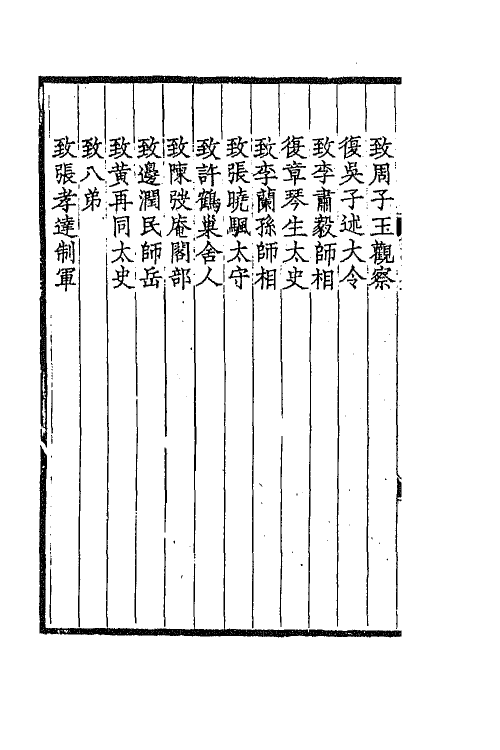 致周子玉觀察
復吳子述大令
致李肅毅師相
復章琴生太史
致李蘭孫師相
致張曉颿太守
致許鶴巢舍人
致陳弢庵閣部
致邊潤民師岳
致黃再同太史
致八弟
致張孝達制軍